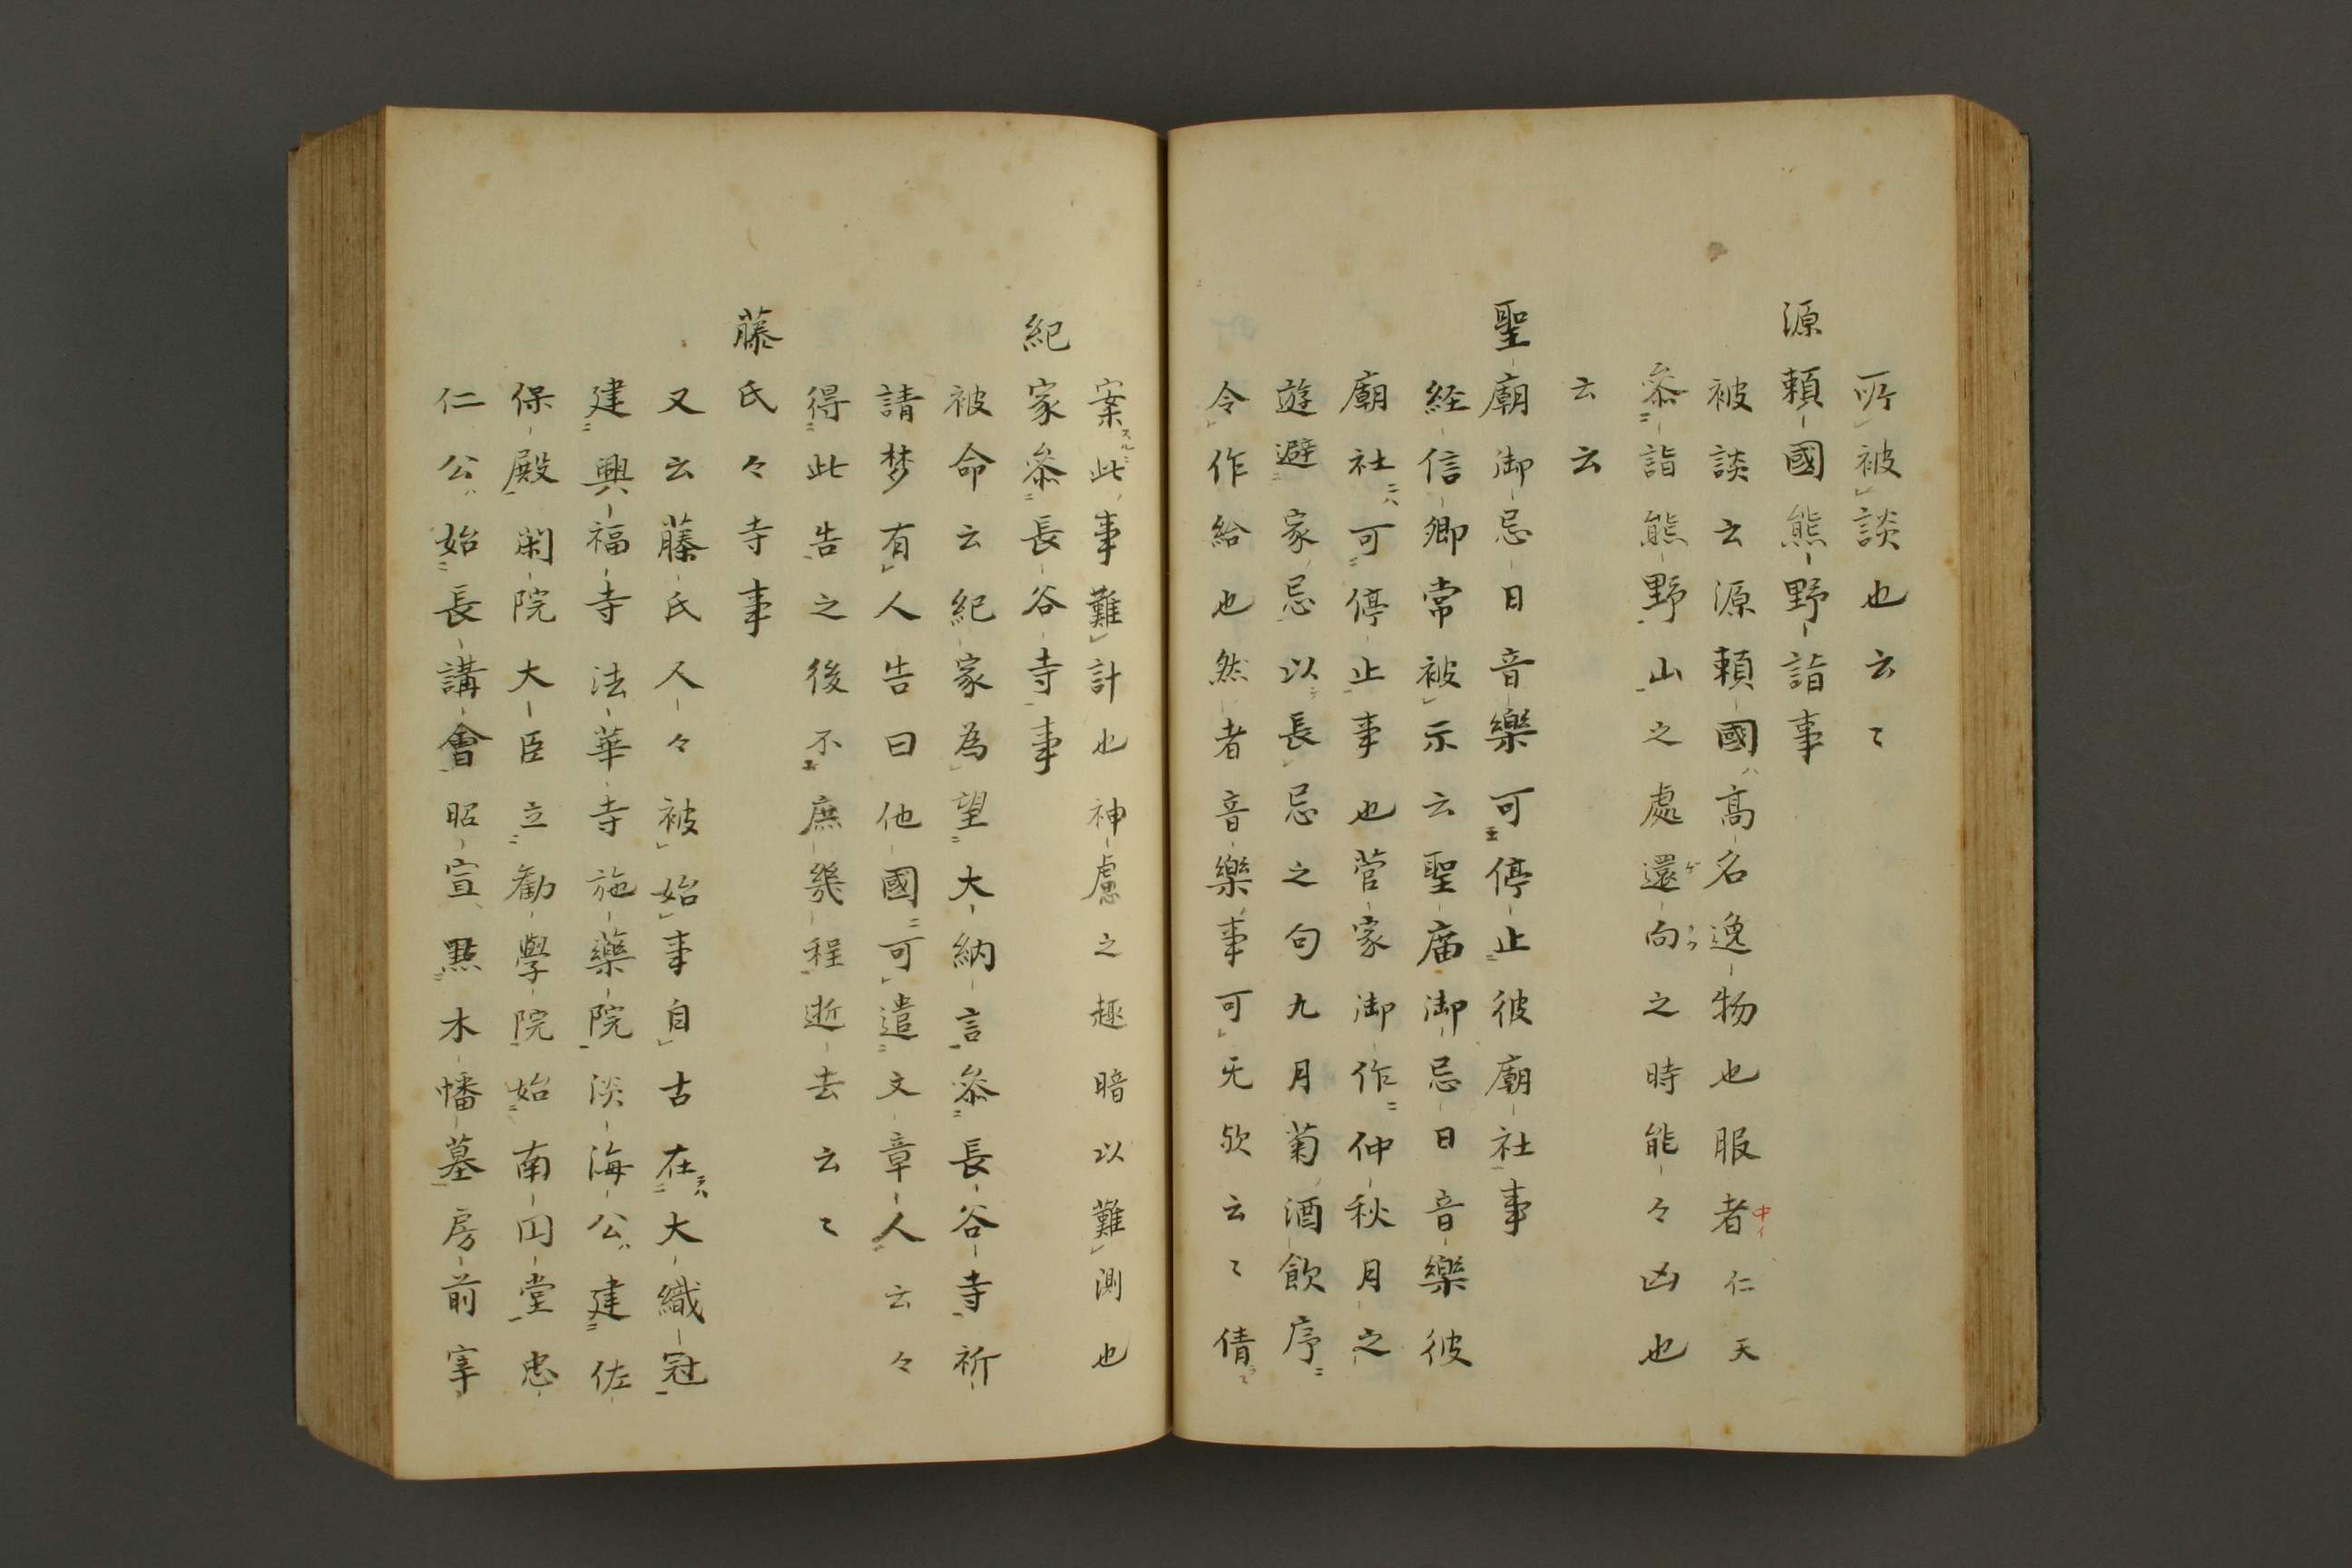 所被談也云〻
源頼國熊野詣事
被談云源頼國高名逸物也服者仁天
参詣熊野山之處還向之時能々凶也
云云
聖廟御忌日音樂可停止彼廟社事
経信卿常被示云聖廟御忌日音樂彼
廟社可停止事也菅家御作仲秋月之
遊避家忌以長忌之句九月菊酒飲序
令作給也然者音樂事可无欤云〻倩
案此事難計也神慮之趣暗以難測也
紀家参長谷寺事
被命云紀家為望大納言参長谷寺祈
請梦有人告曰他國可遣文章人云々
得此告之後不庶幾程逝去云〻
藤氏々寺事
又云藤氏人々被始事自古在大織冠
建興福寺法華寺施藥院淡海公建佐
保殿閑院大臣立勸學院始南円堂忠
仁公始長講會昭宣點木幡墓房前宰